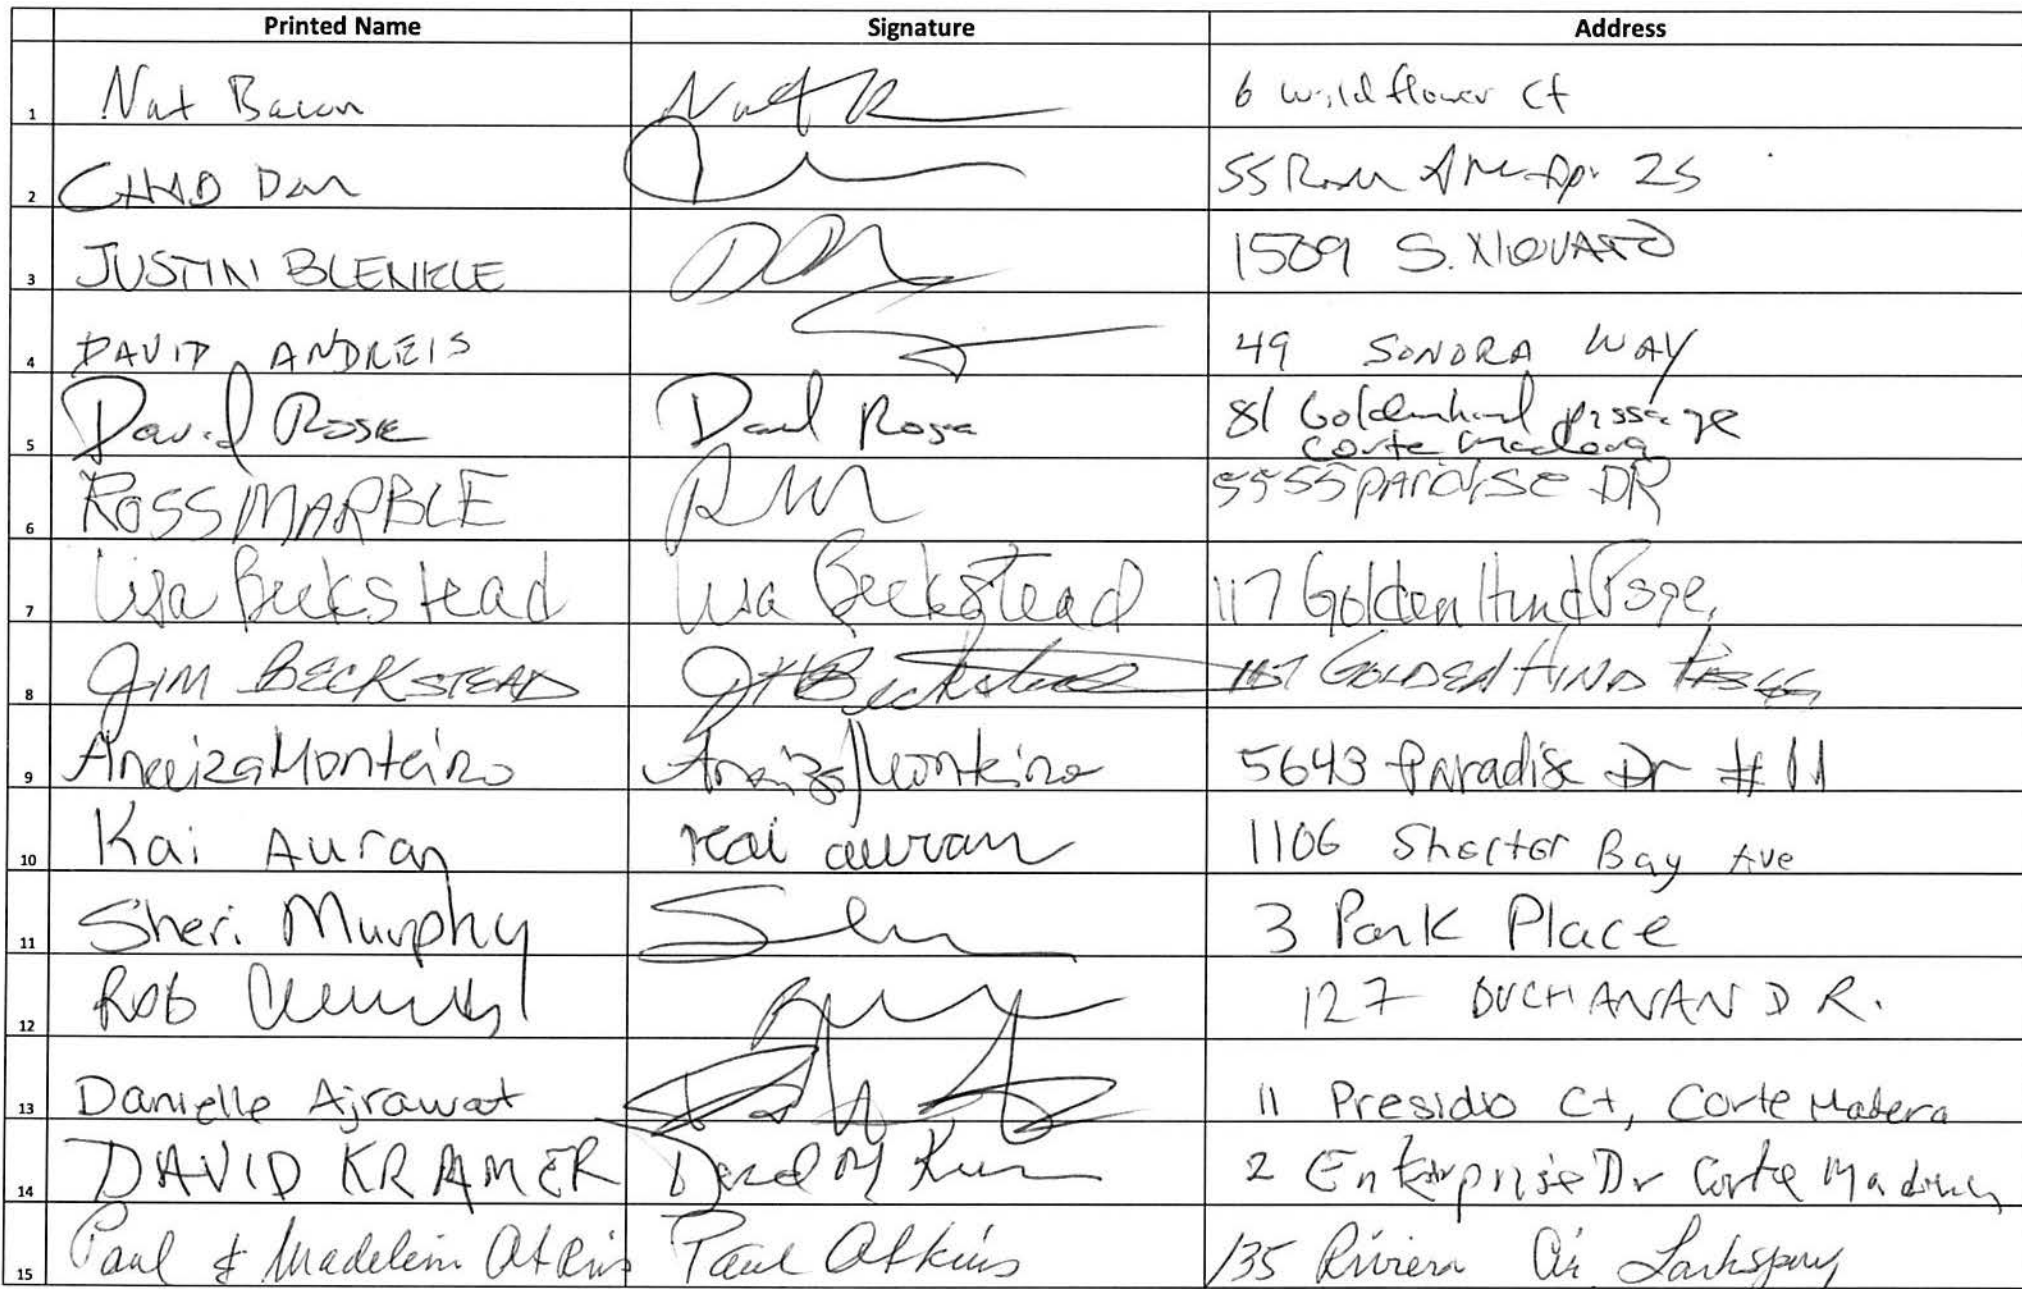 Printed Name Signature Address
1 Nat Bacon 6 Wildflower Ct
2 CHAD 55 25
3 JUSTIN BLENKLE 1509 S. NOVATO
4 DAVID ANDREIS 49 SONORA WAY
5 David Rose David Rose 81 Goldenhind passage
Corte Madera
6 ROSS MARBLE RM 5555 PARADISE DR
7 Lisa Beckstead Lisa Beckstead 117 Golden Hind Psge,
8 JIM BECKSTEAD Beckstead 117 GOLDEN HIND
9 Monteiro Monteiro 5643 Paradise Dr # 11
10 Kai Auran Kai auran 1106 Bay Ave
11 Sheri Murphy 3 Park Place
12 Rob 127 BUCHANAN DR.
13 Danielle Ajrawat 11 Presidio Ct, Corte Madera
14 DAVID KRAMER David M 2 Enterprise Dr Corte Madera
15 Paul & Madelein Atkins Paul Atkins 135 Riviera Cir Larkspur